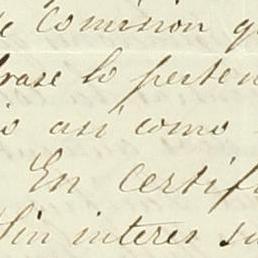 e Comision q
brase lo perten
io asi como
En certif
Sin interes su